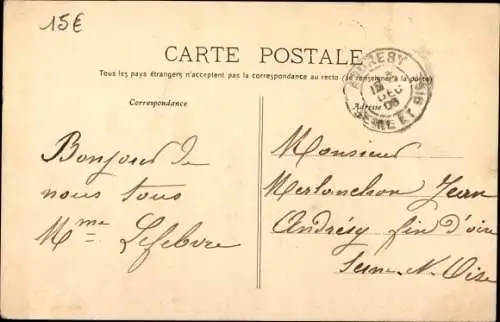 15€
CARTE POSTALE
Tous les pays étrangers n'acceptent pas la correspondance au recto (Se renseigner à la poste)
ANDRESY
DEC
08
SEINE ET OISE
Correspondance
Adresse
Bonjour de
nous tous
Mme Lefebvre
Monsieur
Jean
Andrésy fin d'oise
Seine-N-Oise